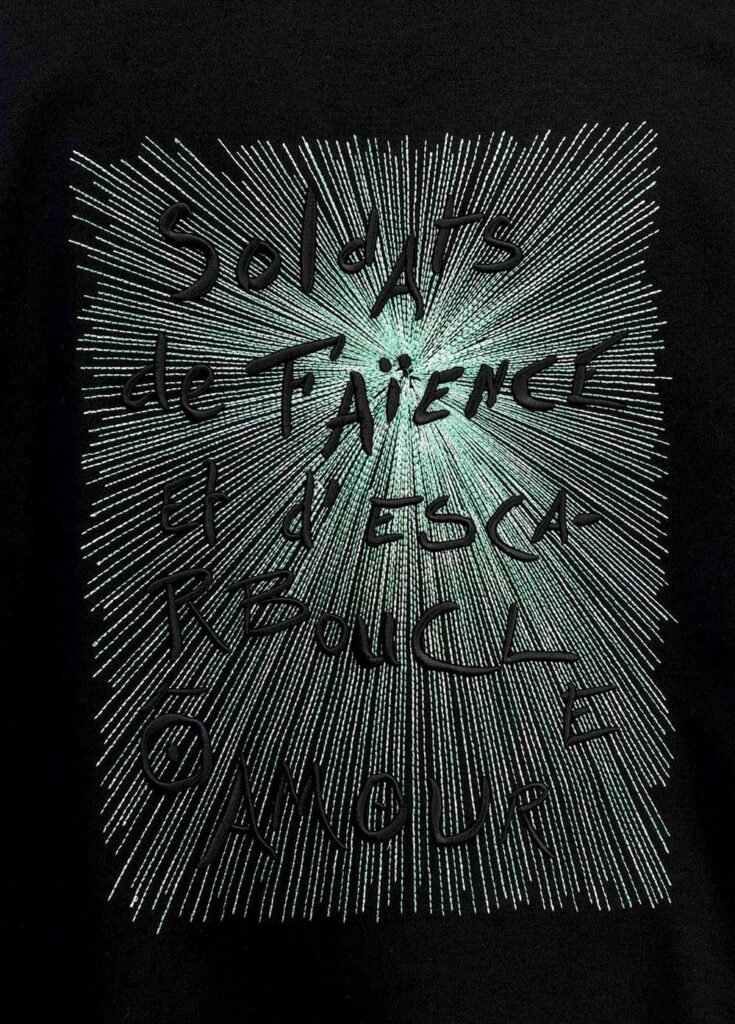 Soldats
de FAÏENCE
Et d'ESCA-
RBOUCL
E
Ô AMOUR